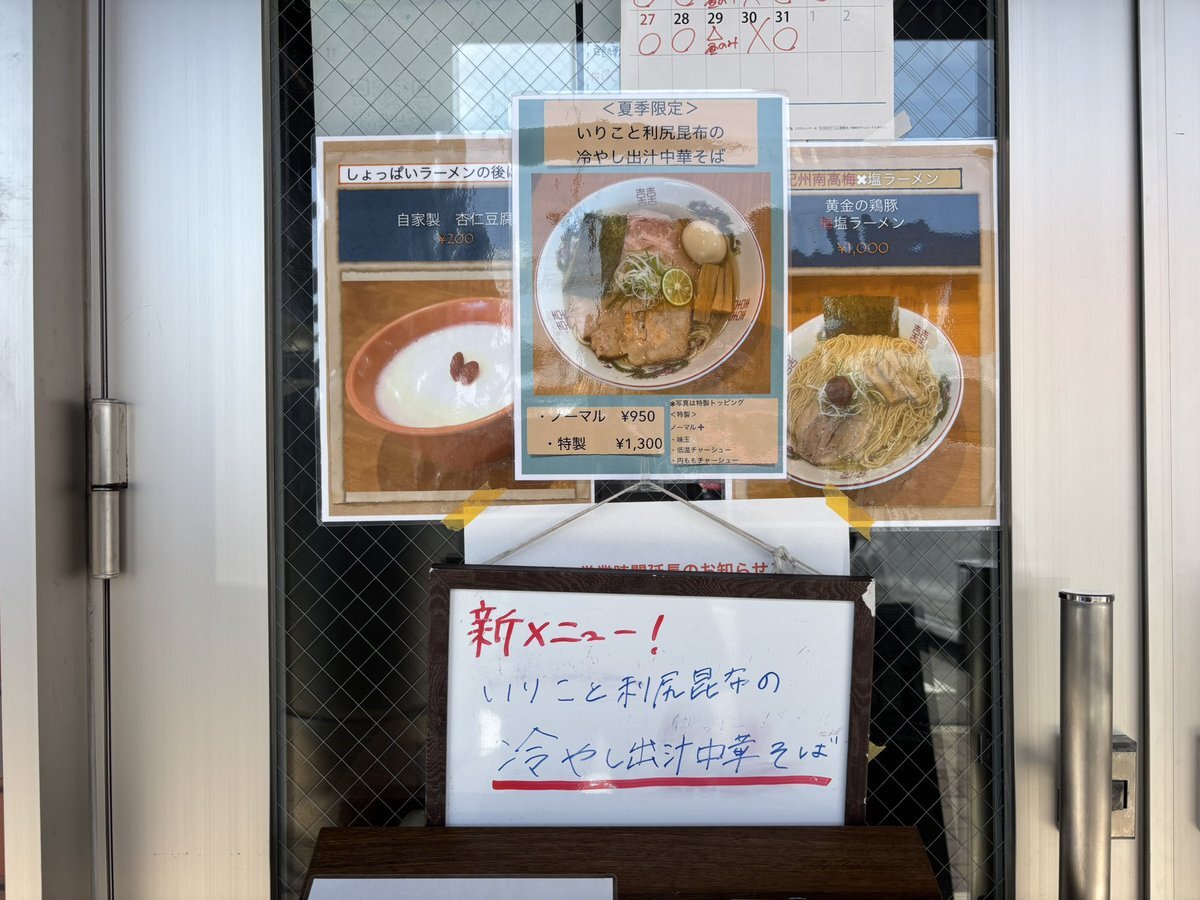 27 28 29 30 31 1 2
○ ○ △ × ○
昼のみ
<夏季限定>
いりこと利尻昆布の
冷やし出汁中華そば
・ノーマル ¥950
・特製 ¥1,300
※写真は特製トッピング
<特製>
ノーマル+
・味玉
・低温チャーシュー
・内ももチャーシュー
しょっぱいラーメンの後に
自家製 杏仁豆腐
¥200
紀州南高梅✖塩ラーメン
黄金の鶏豚
梅塩ラーメン
¥1,000
営業時間延長のお知らせ
新メニュー!
いりこと利尻昆布の
冷やし出汁中華そば